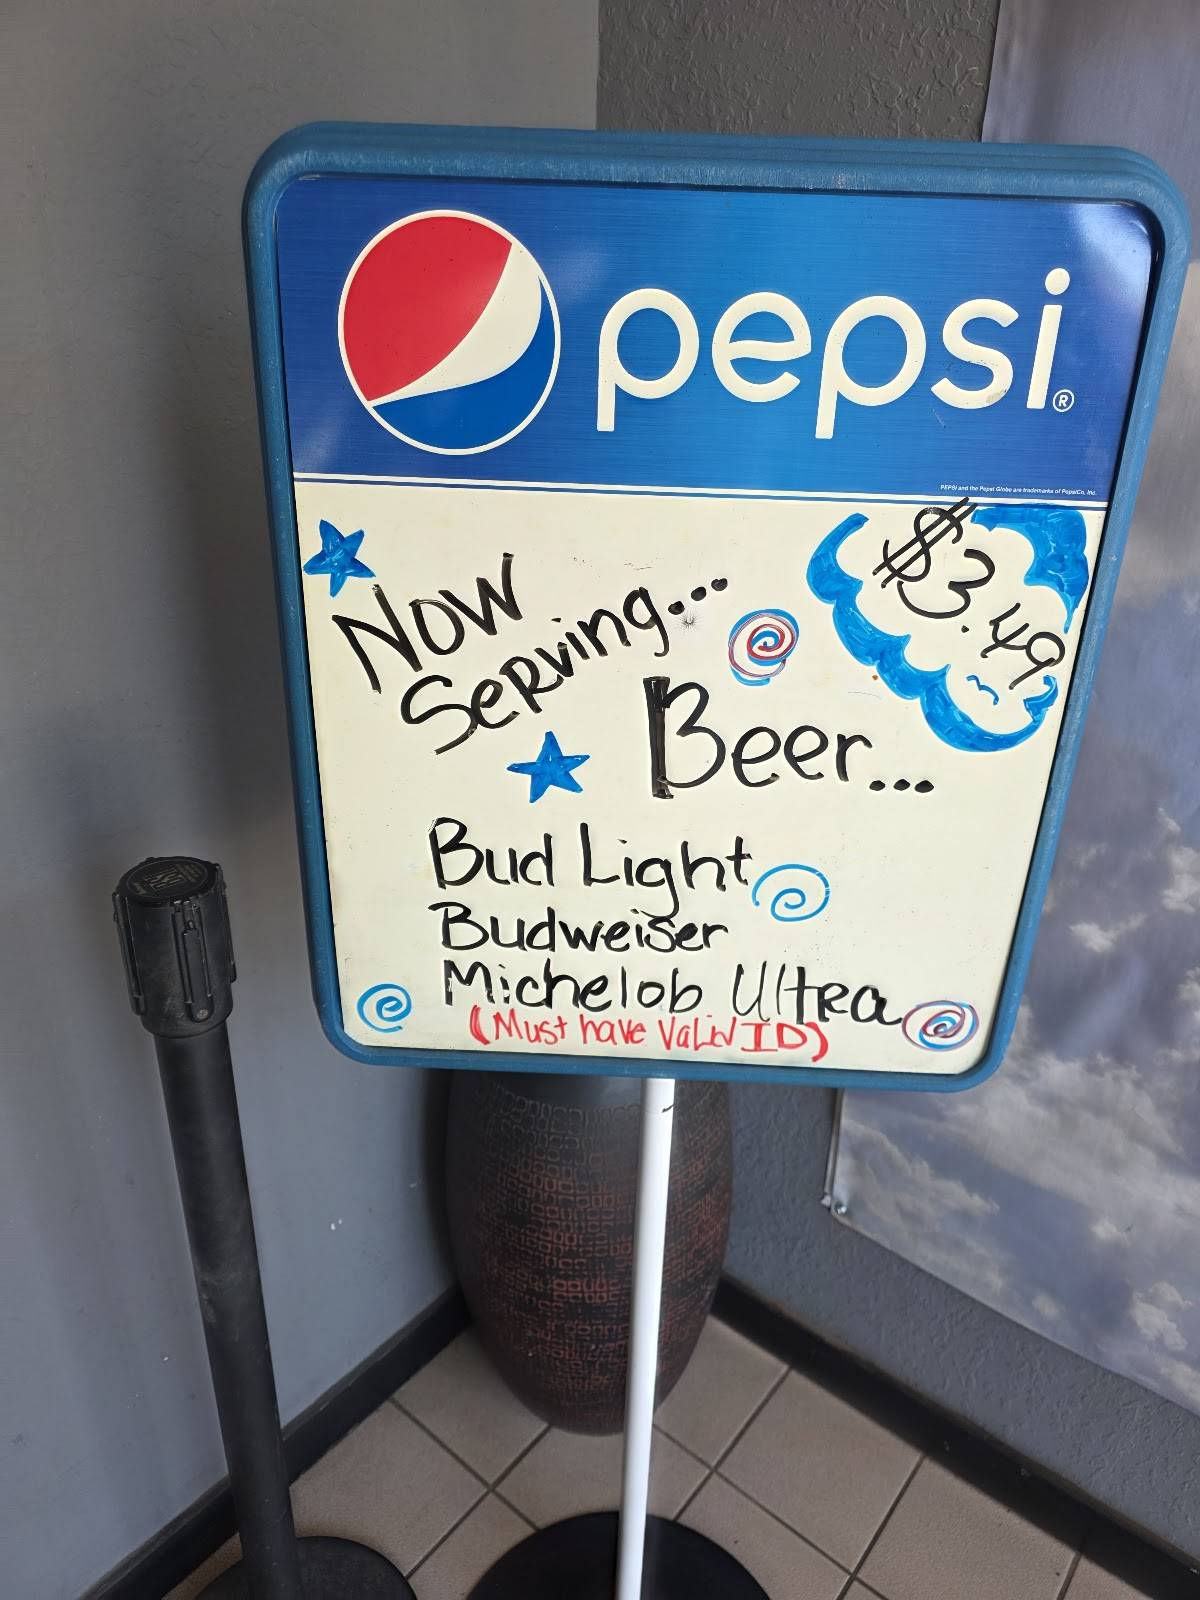 pepsi®
PEPSI and the Pepsi Globe are trademarks of PepsiCo, Inc.
$3.49
Now
Serving...
Beer...
Bud Light
Budweiser
Michelob Ultra
(Must have Valid ID)